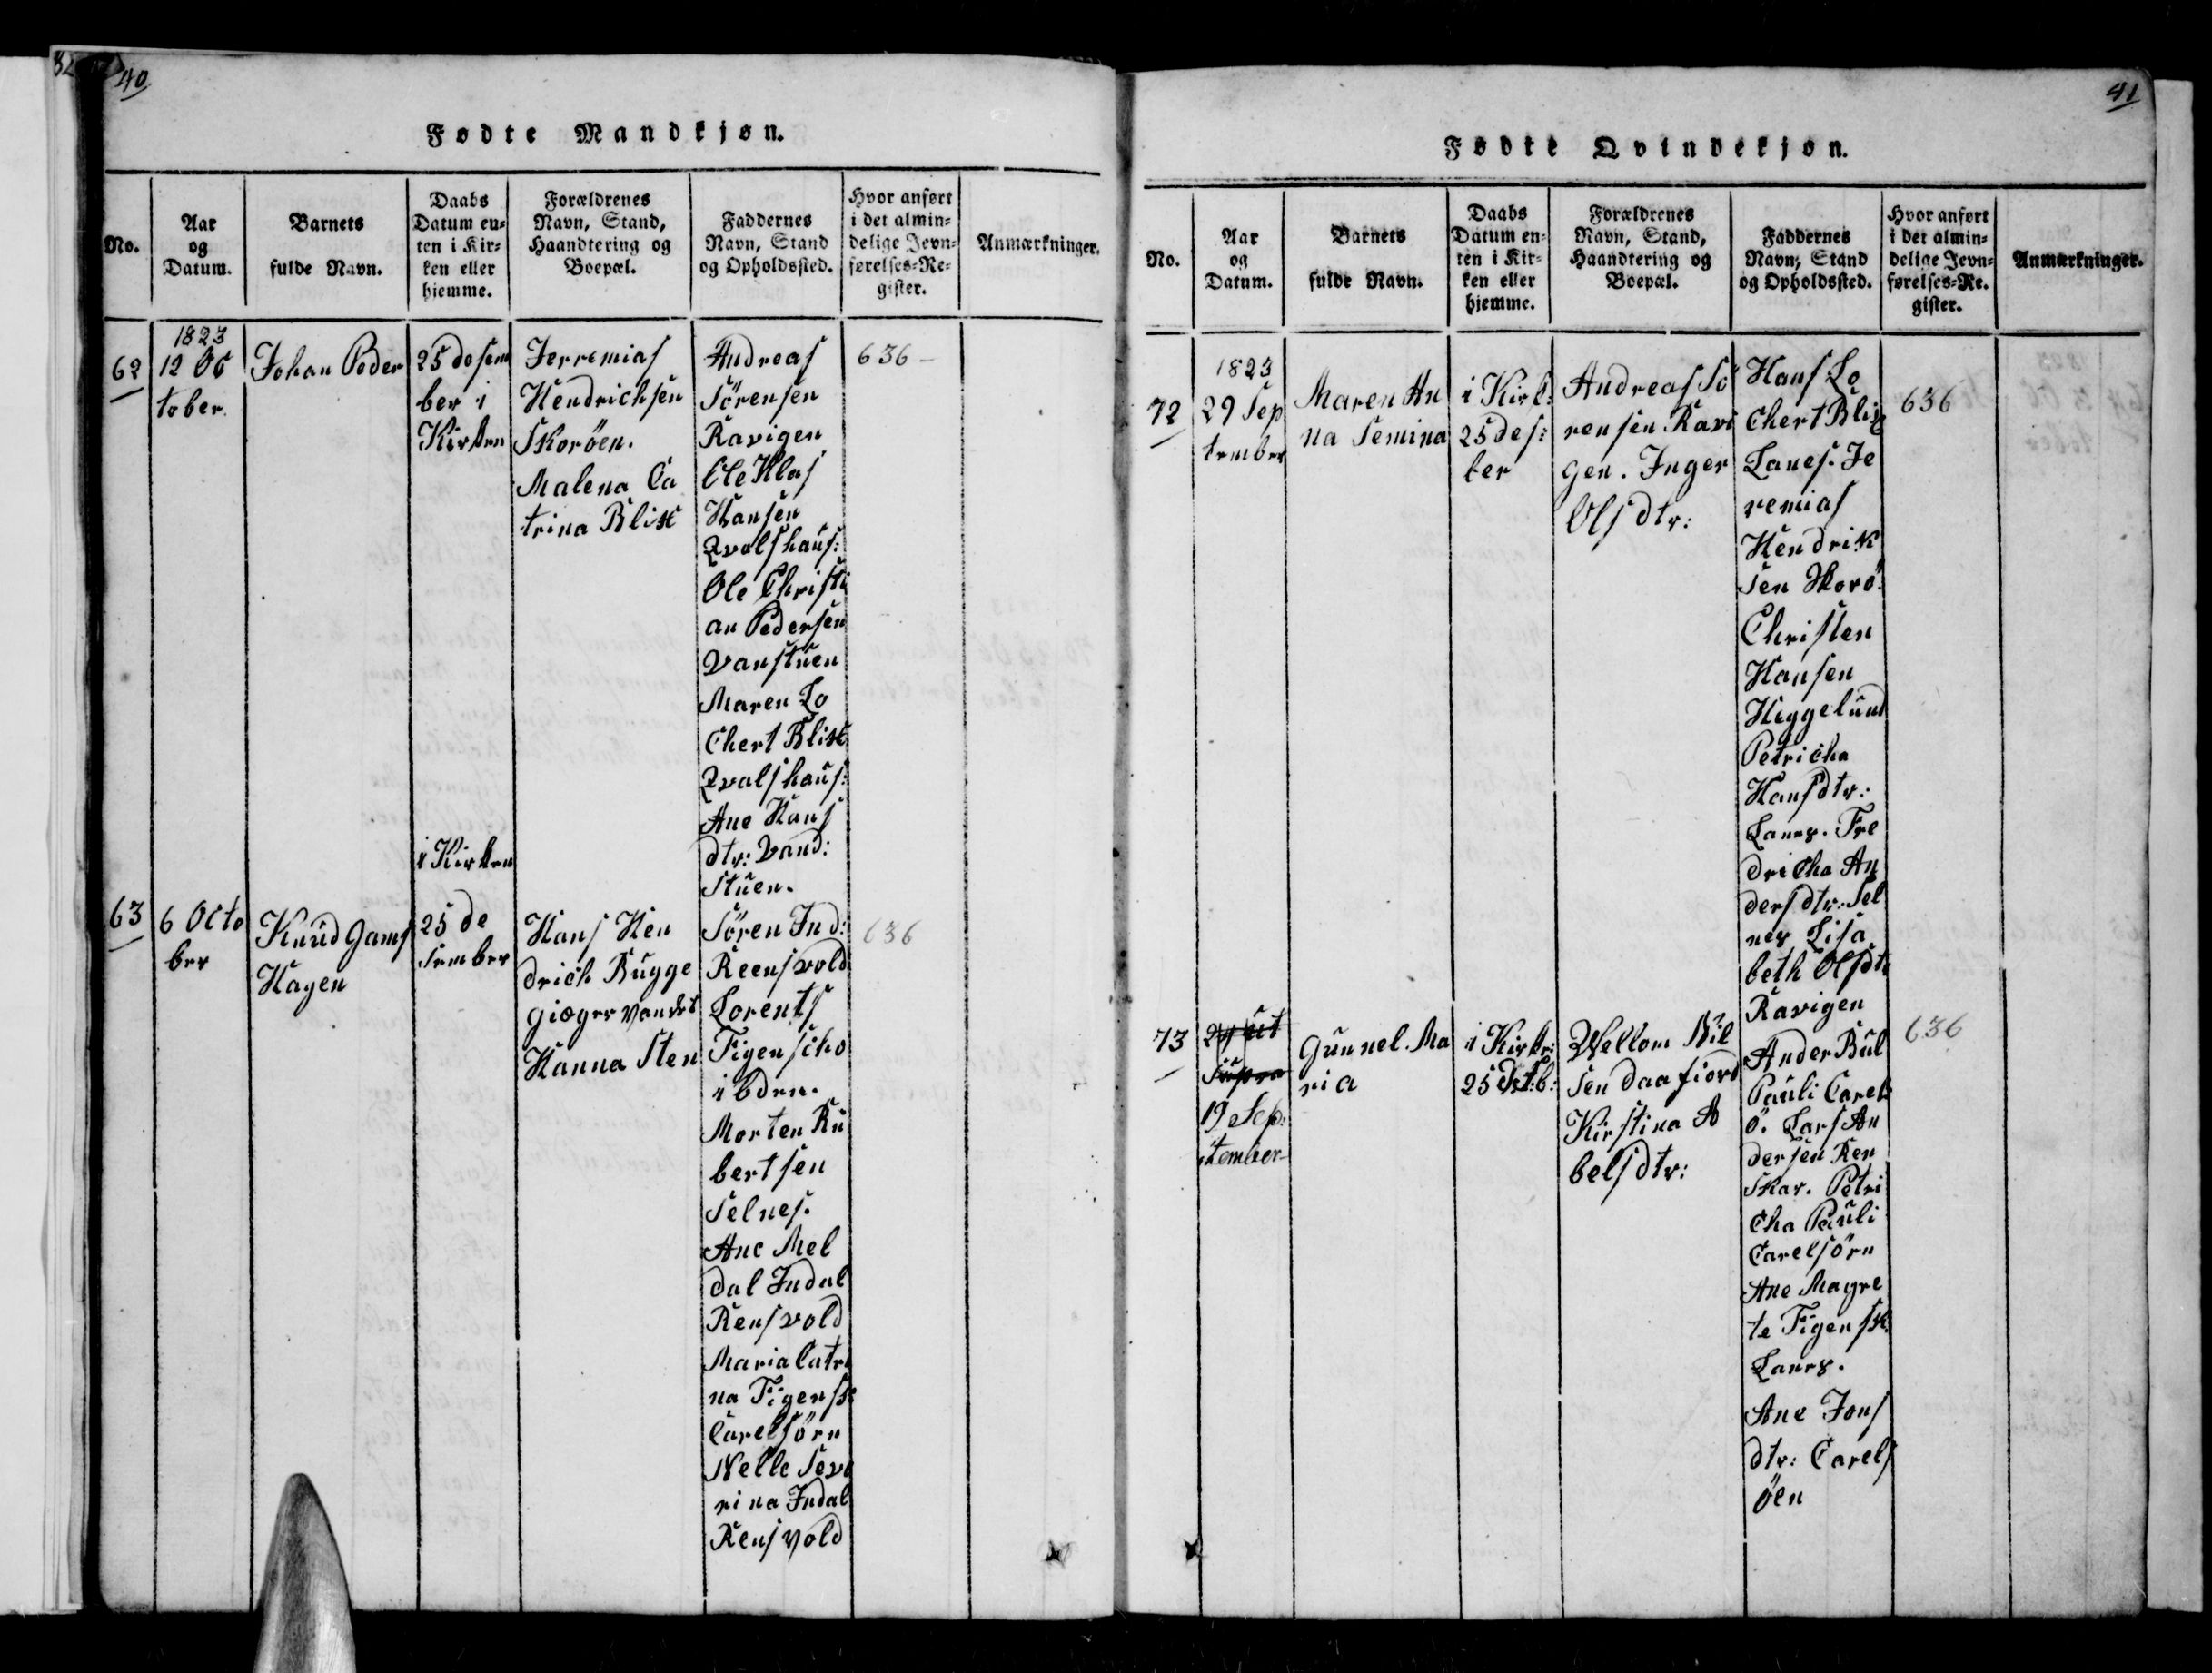 40
Fødte Mandkjøn.
No.
Aar
og
Datum.
Barnets
fulde Navn.
Daabs
Datum en-
ten i Kir-
ken eller
hjemme.
Forældrenes
Navn, Stand,
Haandtering og
Boepæl.
Faddernes
Navn, Stand
og Opholdssted.
Hvor anført
i det almin-
delige Jevn-
førelses-Re-
gister.
Anmærkninger.
62
1823
12 Oc
tober.
Johan Peder
25 desem
ber i
Kirken
Jerremias
Hendrichsen
Skoröen.
Malena Ca
trina Blix
Andreas
Sörensen
Ravigen
Ole Klas
Hansen
Qvalshaus:
Ole Christi
an Pedersen
Vanstuen
Maren Lo
Chert Blix
Qvalshaus:
Ane Hans
dtr: Vand:
Stuen.
636 –
63
6 Octo
ber
Knud Jams
Hagen
i Kirken
25 de
sember
Hans Hen
drich Bugge
giæger Vandet
Hanna Sten
Sören Ind:
Reensvold
Lorents
Figenscho
ibden.
Morten Ru
bertsen
Selnes.
Ane Mel
dal Indal
Rensvold
Maria Catri
na Figensk
Carelsörn
Nelle Seve
rina Indal
Rensvold
636
41
Fødte Qvindekjøn.
No.
Aar
og
Datum.
Barnets
fulde Navn.
Daabs
Datum en-
ten i Kir-
ken eller
hjemme.
Forældrenes
Navn, Stand,
Haandtering og
Boepæl.
Faddernes
Navn, Stand
og Opholdssted.
Hvor anført
i det almin-
delige Jevn-
førelses-Re-
gister.
Anmærkninger.
72
1823
29 Sep
tember
Maren An
na Semina
i Kirk:
25 des:
ber
Andreas Sö
rensen Ravi
gen. Inger
Olsdtr:
Hans Lo
Chert Blix
Lanes. Je
remias
Hendrik
sen Skorö.
Christen
Hansen
Heggelund
Petricha
Hansdtr:
Lanes. Fre
dricha An
dersdtr: Sel
nes Lisa
beth Olsdtr
Ravigen
636
73
ut
Supra
19 Sep:
tember
Gunnel. Ma
ria
i Kirk:
25 des:b:
Wellom Nil
sen Daafiord
Kirstina A
belsdtr:
Ander Bul
Pauli Carels
ö. Lars An
dersen Ren
skar. Petri
cha Pauli
Carelsörn
Ane Magre
te Figensk.
Lanes.
Ane Jons
dtr: Carels
öen
636